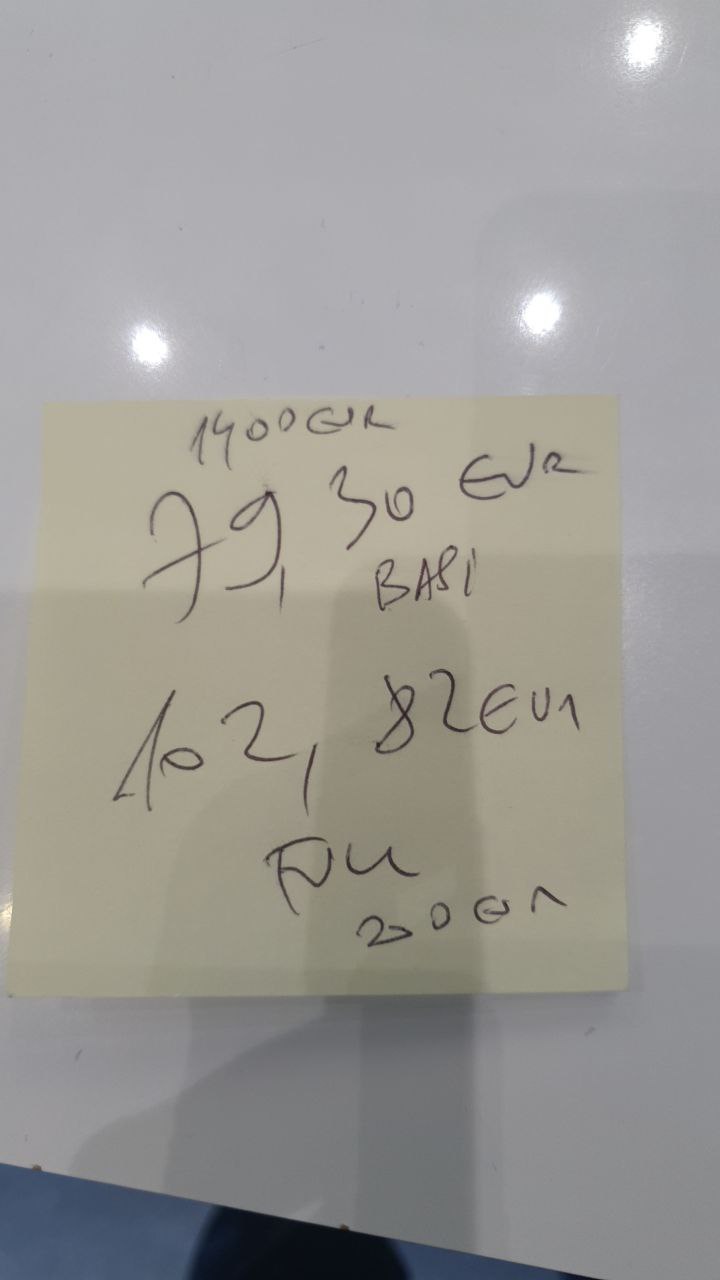 1400 EUR
79,30 EUR
BASI
102,82 EUR
FULL
200 EUR